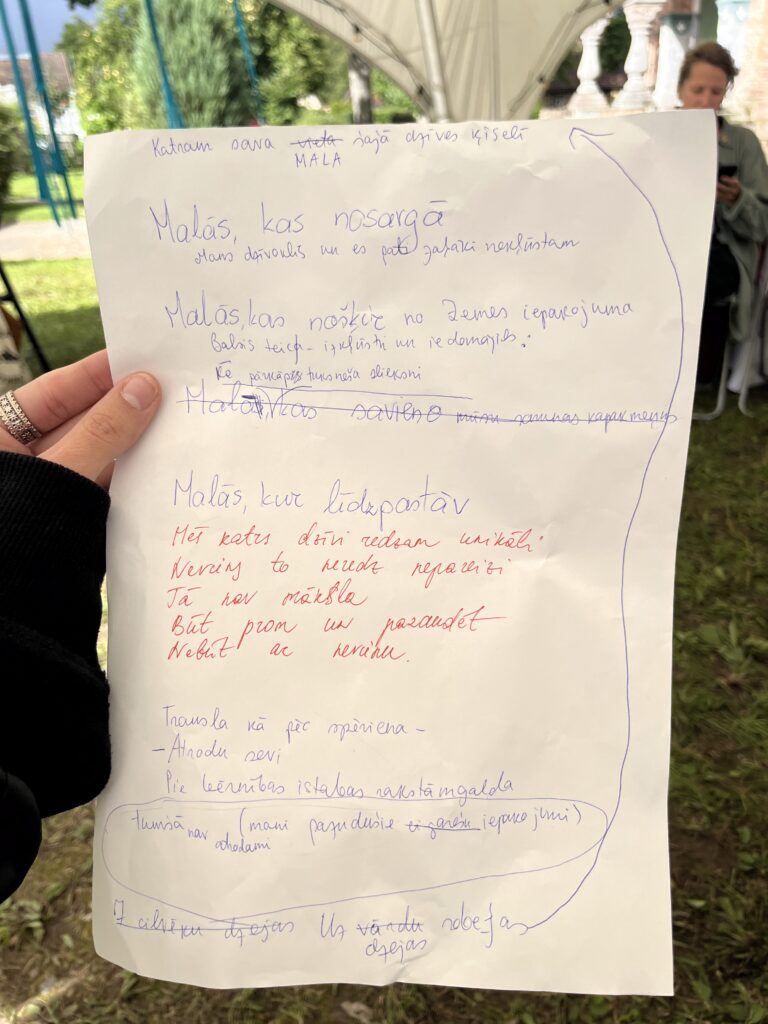 Katram sava vieta šajā dzīves ķīselī
MALA
Malās, kas nosargā
Mans dzīvoklis un es pati zaļāki nekļūstam
Malās, kas nošķir no Zemes iepakojuma
Balss teica - izkļūsti un iedomājies:
Kā pārkāpis tuksneša slieksni
Malās, kas savieno mūsu kapakmeņus
Malās, kur līdzpastāv
Mēs katrs dzīvi redzam unikāli
Neviens to neredz nepareizi
Tā nav māksla
Būt prom un pazaudēt
Nebūt ar nevienu.
Trausla kā pēc spēriena -
- Atrodu sevi
Pie bērnības istabas rakstāmgalda
tumsā nav (mani pazudušie cigarešu iepakojumi)
atrodami
7 cilvēku dzejas Uz vārdu robežas
dzejas